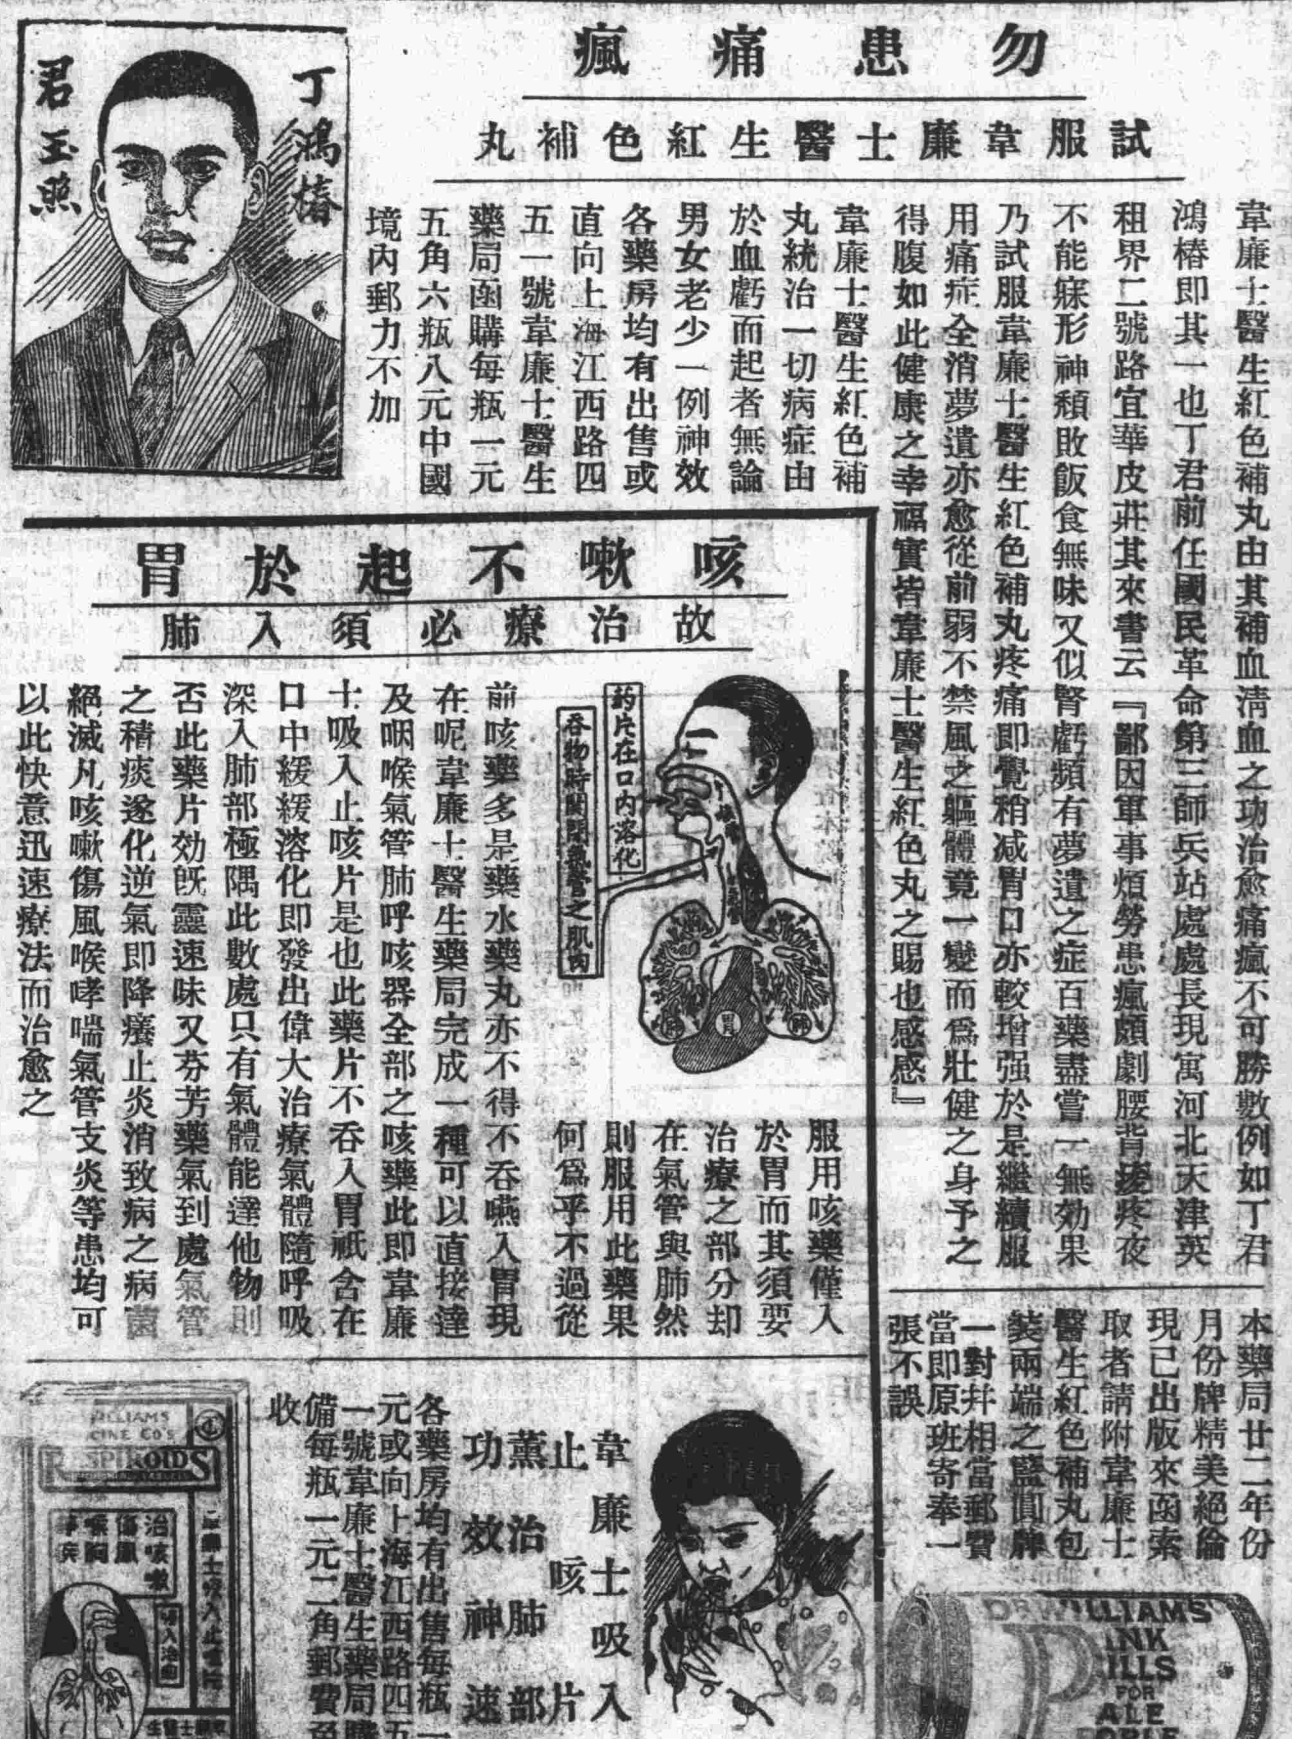 勿患痛瘋
試服韋廉士醫生紅色補丸
丁鴻椿
君玉照
韋廉士醫生紅色補丸由其補血淸血之功治愈痛瘋不可勝數例如丁君
鴻椿即其一也丁君前任國民革命第三師兵站處處長現寓河北天津英
租界二號路宜華皮莊其來書云『鄙因軍事煩勞患瘋頗劇腰背痠疼夜
不能寐形神頹敗飯食無味又似腎虧頻有夢遺之症百藥盡嘗一無効果
乃試服韋廉士醫生紅色補丸疼痛即覺稍减胃口亦較增强於是繼續服
用痛症全消夢遺亦愈從前弱不禁風之軀體竟一變而爲壯健之身予之
得腹如此健康之幸福實皆韋廉士醫生紅色丸之賜也感感』
韋廉士醫生紅色補
丸統治一切病症由
於血虧而起者無論
男女老少一例神效
各藥房均有出售或
直向上海江西路四
五一號韋廉士醫生
藥局函購每瓶一元
五角六瓶八元中國
境內郵力不加
本藥局廿二年份
月份牌精美絕倫
現已出版來函索
取者請附韋廉士
醫生紅色補丸包
裝兩端之藍圓牌
一對幷相當郵費
當即原班寄奉一
張不誤
DR WILLIAMS'
PINK
PILLS
FOR
PALE
PEOPLE
咳嗽不起於胃
故治療必須入肺
葯片在口內溶化
吞物時關閉氣管之肌肉
肺
胃
肺
服用咳藥僅入
於胃而其須要
治療之部分却
在氣管與肺然
則服用此藥果
何爲乎不過從
前咳藥多是藥水藥丸亦不得不吞嚥入胃現
在呢韋廉士醫生藥局完成一種可以直接達
及咽喉氣管肺呼咳器全部之咳藥此即韋廉
士吸入止咳片是也此藥片不吞入胃祇含在
口中緩緩溶化即發出偉大治療氣體隨呼吸
深入肺部極隅此數處只有氣體能達他物則
否此藥片効旣靈速味又芬芳藥氣到處氣管
之積痰遂化逆氣即降癢止炎消致病之病菌
絕滅凡咳嗽傷風喉哮喘氣管支炎等患均可
以此快意迅速療法而治愈之
韋廉士吸入
止咳片
薰治肺部
功效神速
各藥房均有出售每瓶一
元或向上海江西路四五
一號韋廉士醫生藥局購
備每瓶一元二角郵費免
收
WILLIAMS
CINE CO'S
RESPIROIDS
治咳嗽
傷風
喉痛